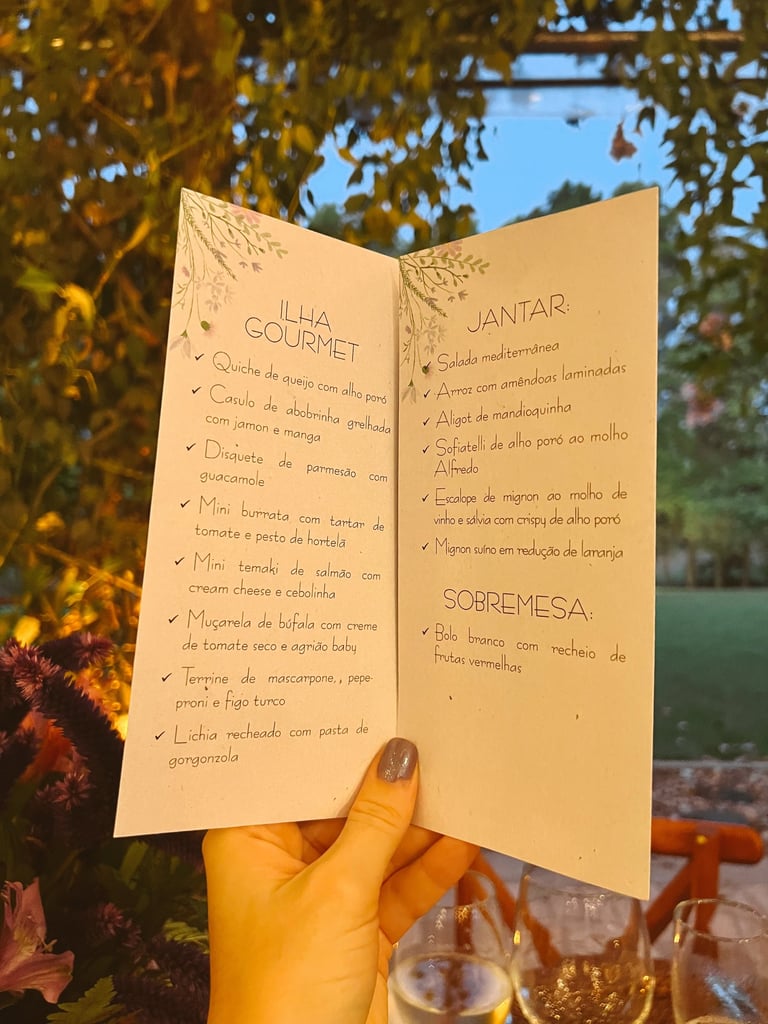 ILHA
GOURMET
✓ Quiche de queijo com alho poró
✓ Casulo de abobrinha grelhada
com jamon e manga
✓ Disquete de parmesão com
guacamole
✓ Mini burrata com tartar de
tomate e pesto de hortelã
✓ Mini temaki de salmão com
cream cheese e cebolinha
✓ Muçarela de búfala com creme
de tomate seco e agrião baby
✓ Terrine de mascarpone,, pepe-
proni e figo turco
✓ Lichia recheado com pasta de
gorgonzola
JANTAR:
✓ Salada mediterrânea
✓ Arroz com amêndoas laminadas
✓ Aligot de mandioquinha
✓ Sofiatelli de alho poró ao molho
Alfredo
✓ Escalope de mignon ao molho de
vinho e sálvia com crispy de alho poró
✓ Mignon suíno em redução de laranja
SOBREMESA:
✓ Bolo branco com recheio de
frutas vermelhas